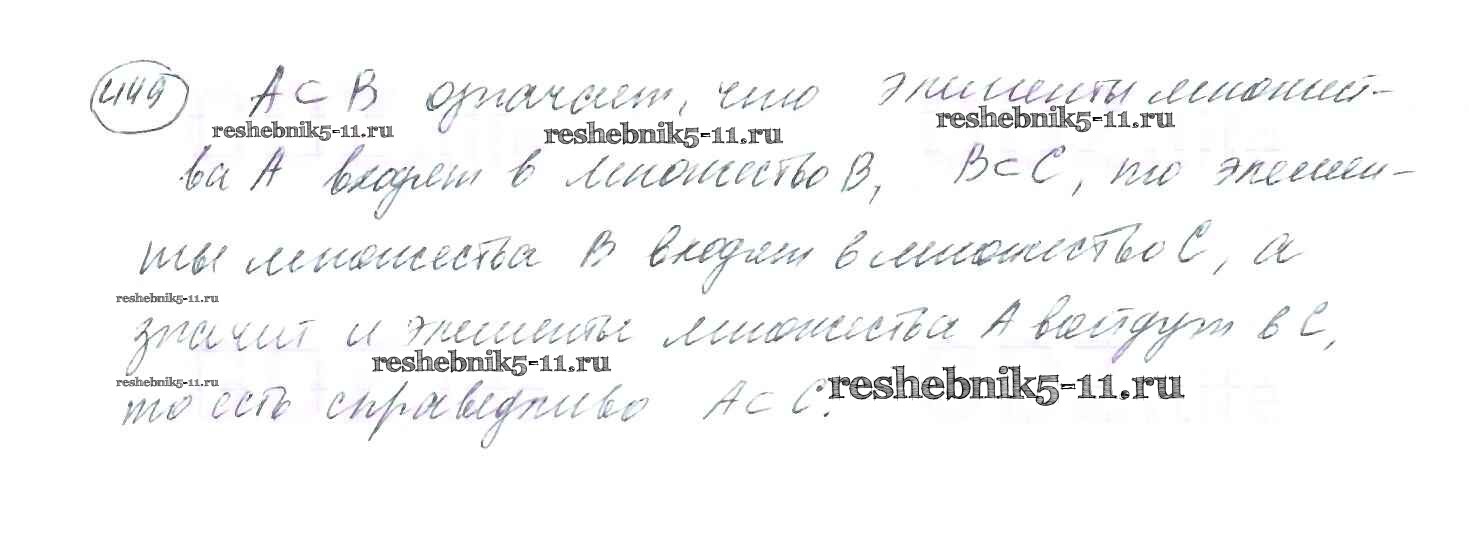 449 A ⊂ B означает, что элементы множест-
reshebnik5-11.ru reshebnik5-11.ru reshebnik5-11.ru
ва A входят в множество B, B ⊂ C, то элемен-
ты множества B входят в множество C, а
reshebnik5-11.ru
значит и элементы множества A войдут в C,
reshebnik5-11.ru reshebnik5-11.ru reshebnik5-11.ru
то есть справедливо A ⊂ C.